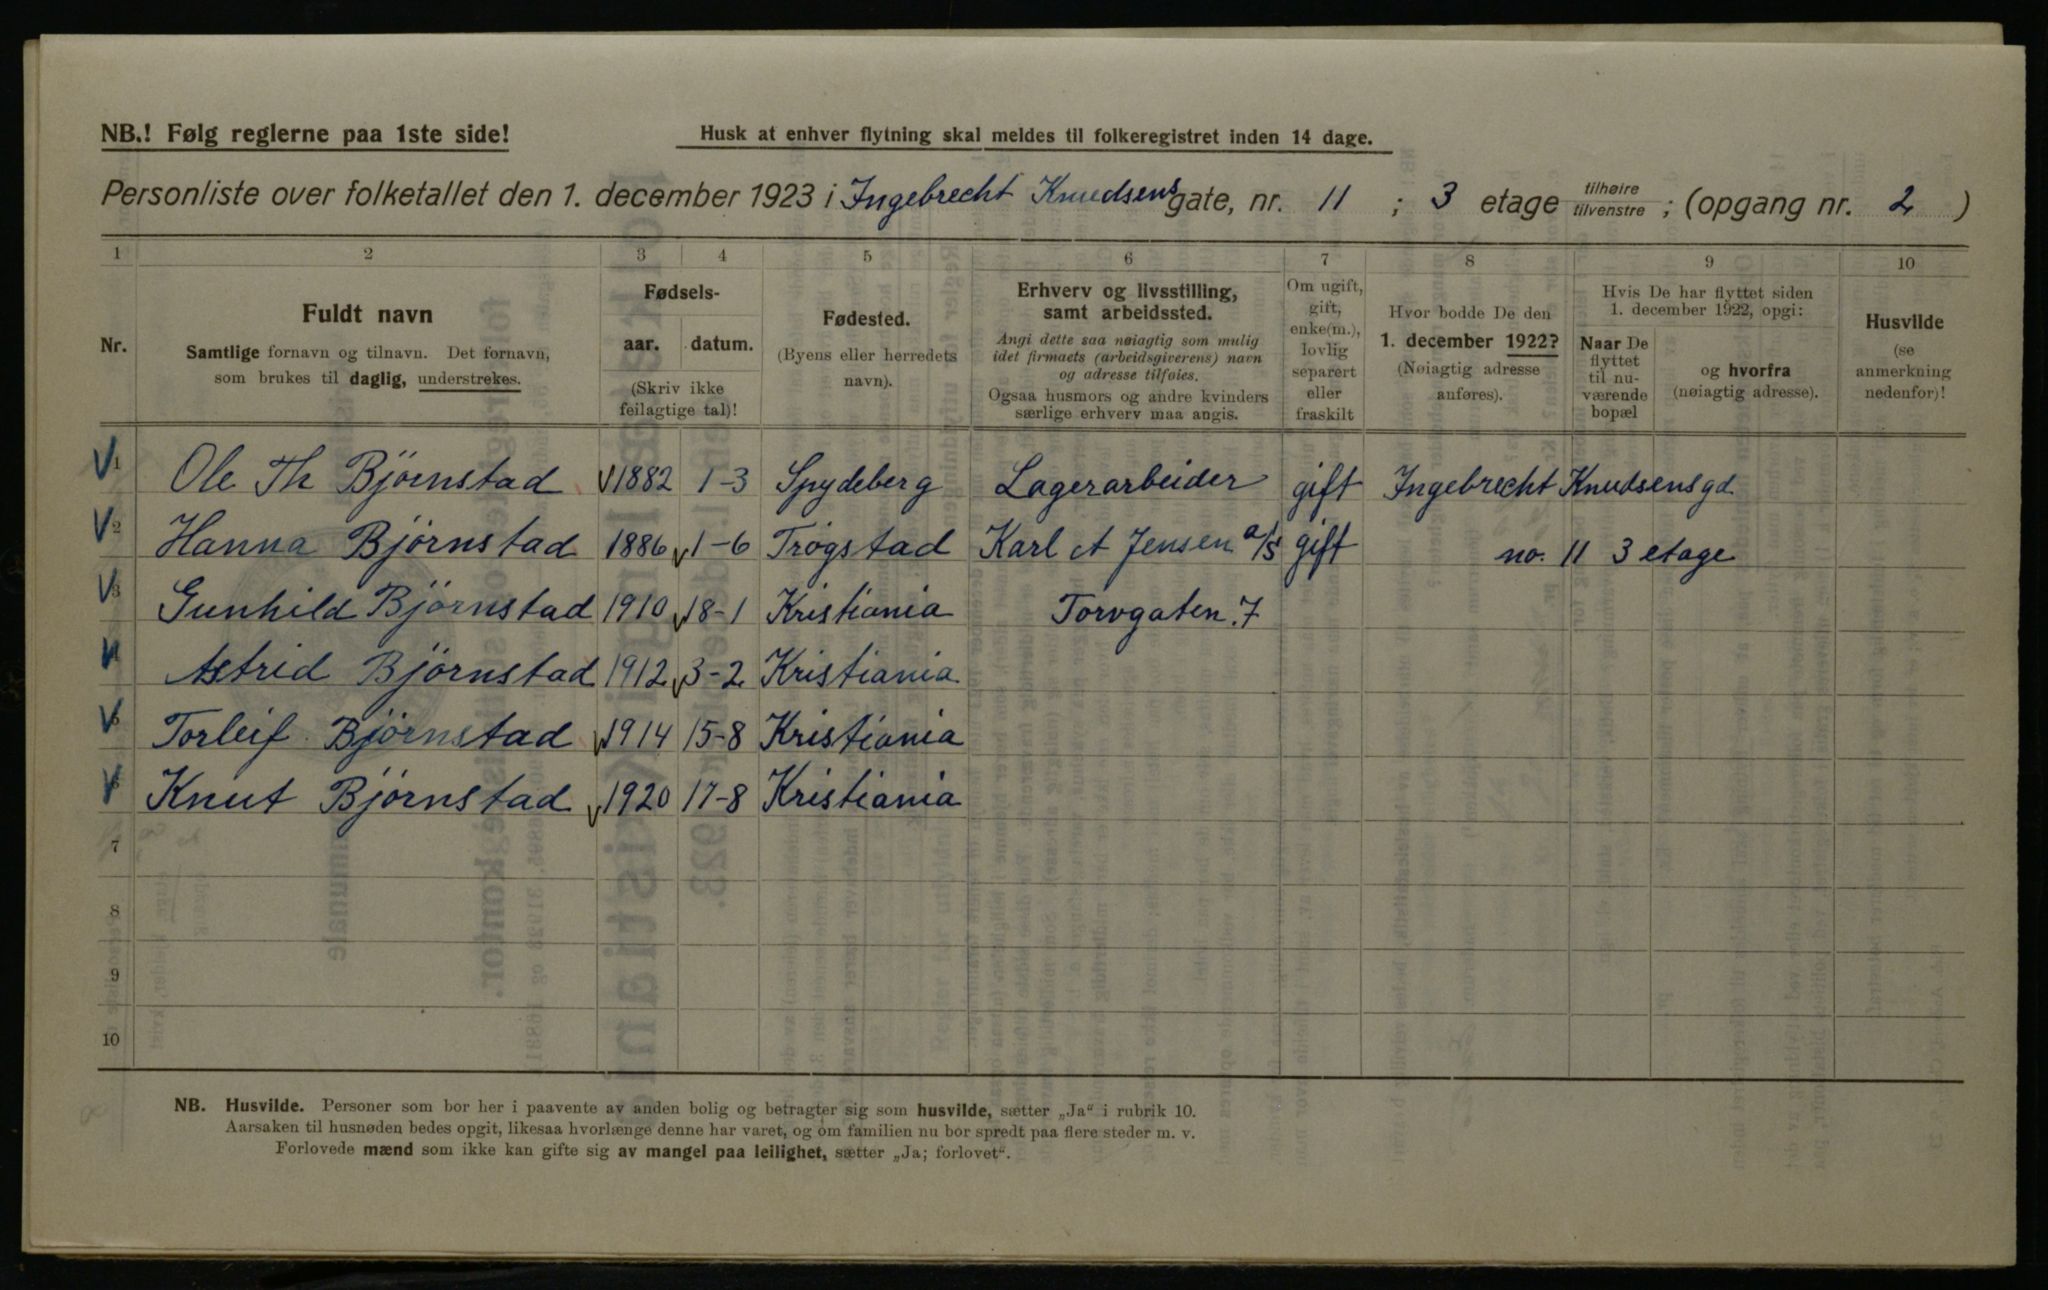 NB.! Følg reglerne paa 1ste side!
Husk at enhver flytning skal meldes til folkeregistret inden 14 dage.
Personliste over folketallet den 1. december 1923 i Ingebrecht Knudsens gate, nr. 11 ; 3 etage tilhøire tilvenstre ; (opgang nr. 2 )
1 2 3 4 5 6 7 8 9 10
Nr.
Fuldt navn
Samtlige fornavn og tilnavn. Det fornavn,
som brukes til daglig, understrekes.
Fødsels-
aar. datum.
(Skriv ikke
feilagtige tal)!
Fødested.
(Byens eller herredets
navn).
Erhverv og livsstilling,
samt arbeidssted.
Angi dette saa nøiagtig som mulig
idet firmaets (arbeidsgiverens) navn
og adresse tilføies.
Ogsaa husmors og andre kvinders
særlige erhverv maa angis.
Om ugift,
gift,
enke(m.),
lovlig
separert
eller
fraskilt
Hvor bodde De den
1. december 1922?
(Nøiagtig adresse
anføres).
Hvis De har flyttet siden
1. december 1922, opgi:
Naar De
flyttet
til nu-
værende
bopæl
og hvorfra
(nøiagtig adresse).
Husvilde
(se
anmerkning
nedenfor)!
1 Ole Th Bjørnstad 1882 1-3 Spydeberg Lagerarbeider gift Ingebrecht Knudsensgd
2 Hanna Bjørnstad 1886 1-6 Trøgstad Karl A Jensen a/s gift no. 11 3 etage
3 Gunhild Bjørnstad 1910 18-1 Kristiania Torvgaten 7
4 Astrid Bjørnstad 1912 3-2 Kristiania
5 Torleif Bjørnstad 1914 15-8 Kristiania
6 Knut Bjørnstad 1920 17-8 Kristiania
7
8
9
10
NB. Husvilde. Personer som bor her i paavente av anden bolig og betragter sig som husvilde, sætter „Ja“ i rubrik 10.
Aarsaken til husnøden bedes opgit, likesaa hvorlænge denne har varet, og om familien nu bor spredt paa flere steder m. v.
Forlovede mænd som ikke kan gifte sig av mangel paa leilighet, sætter „Ja; forlovet“.